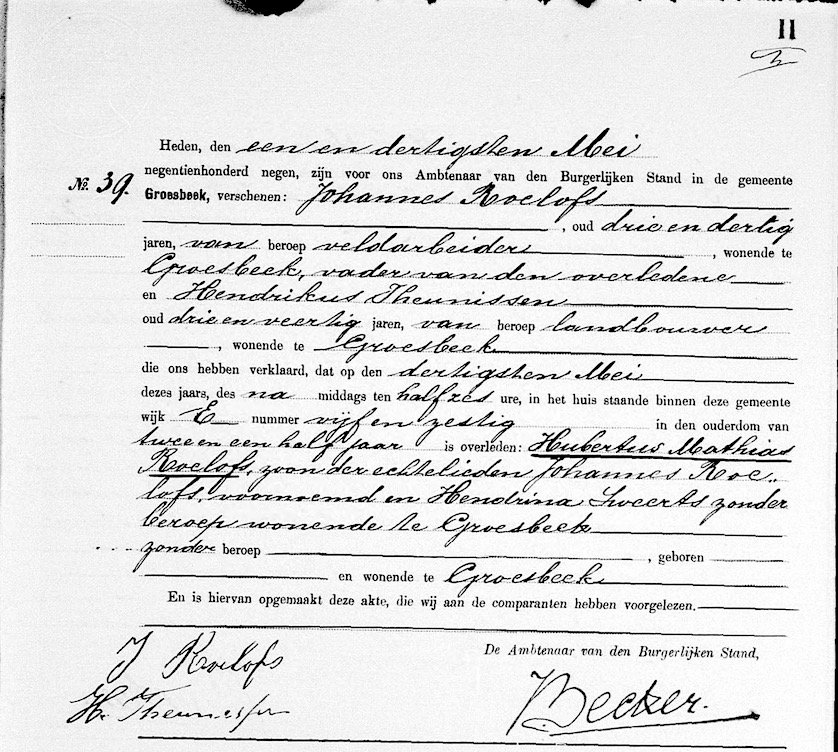 11
Heden, den een en dertigsten Mei
negentienhonderd negen, zijn voor ons Ambtenaar van den Burgerlijken Stand in de gemeente
No. 39. Groesbeek, verschenen: Johannes Roelofs
, oud drie en dertig
jaren, van beroep veldarbeider , wonende te
Groesbeek, vader van den overledene
en Hendrikus Theunissen
oud drie en veertig jaren, van beroep landbouwer
, wonende te Groesbeek
die ons hebben verklaard, dat op den dertigsten Mei
dezes jaars, des na middags ten half zes ure, in het huis staande binnen deze gemeente
wijk E nummer vijf en zestig in den ouderdom van
twee en een half jaar is overleden: Hubertus Mathias
Roelofs, zoon der echtelieden Johannes Roe-
lofs, voornoemd en Hendrina Sweerts zonder
beroep wonende te Groesbeek
zonder beroep , geboren
en wonende te Groesbeek
En is hiervan opgemaakt deze akte, die wij aan de comparanten hebben voorgelezen.
De Ambtenaar van den Burgerlijken Stand,
J Roelofs
H. Theunissen
Becker.